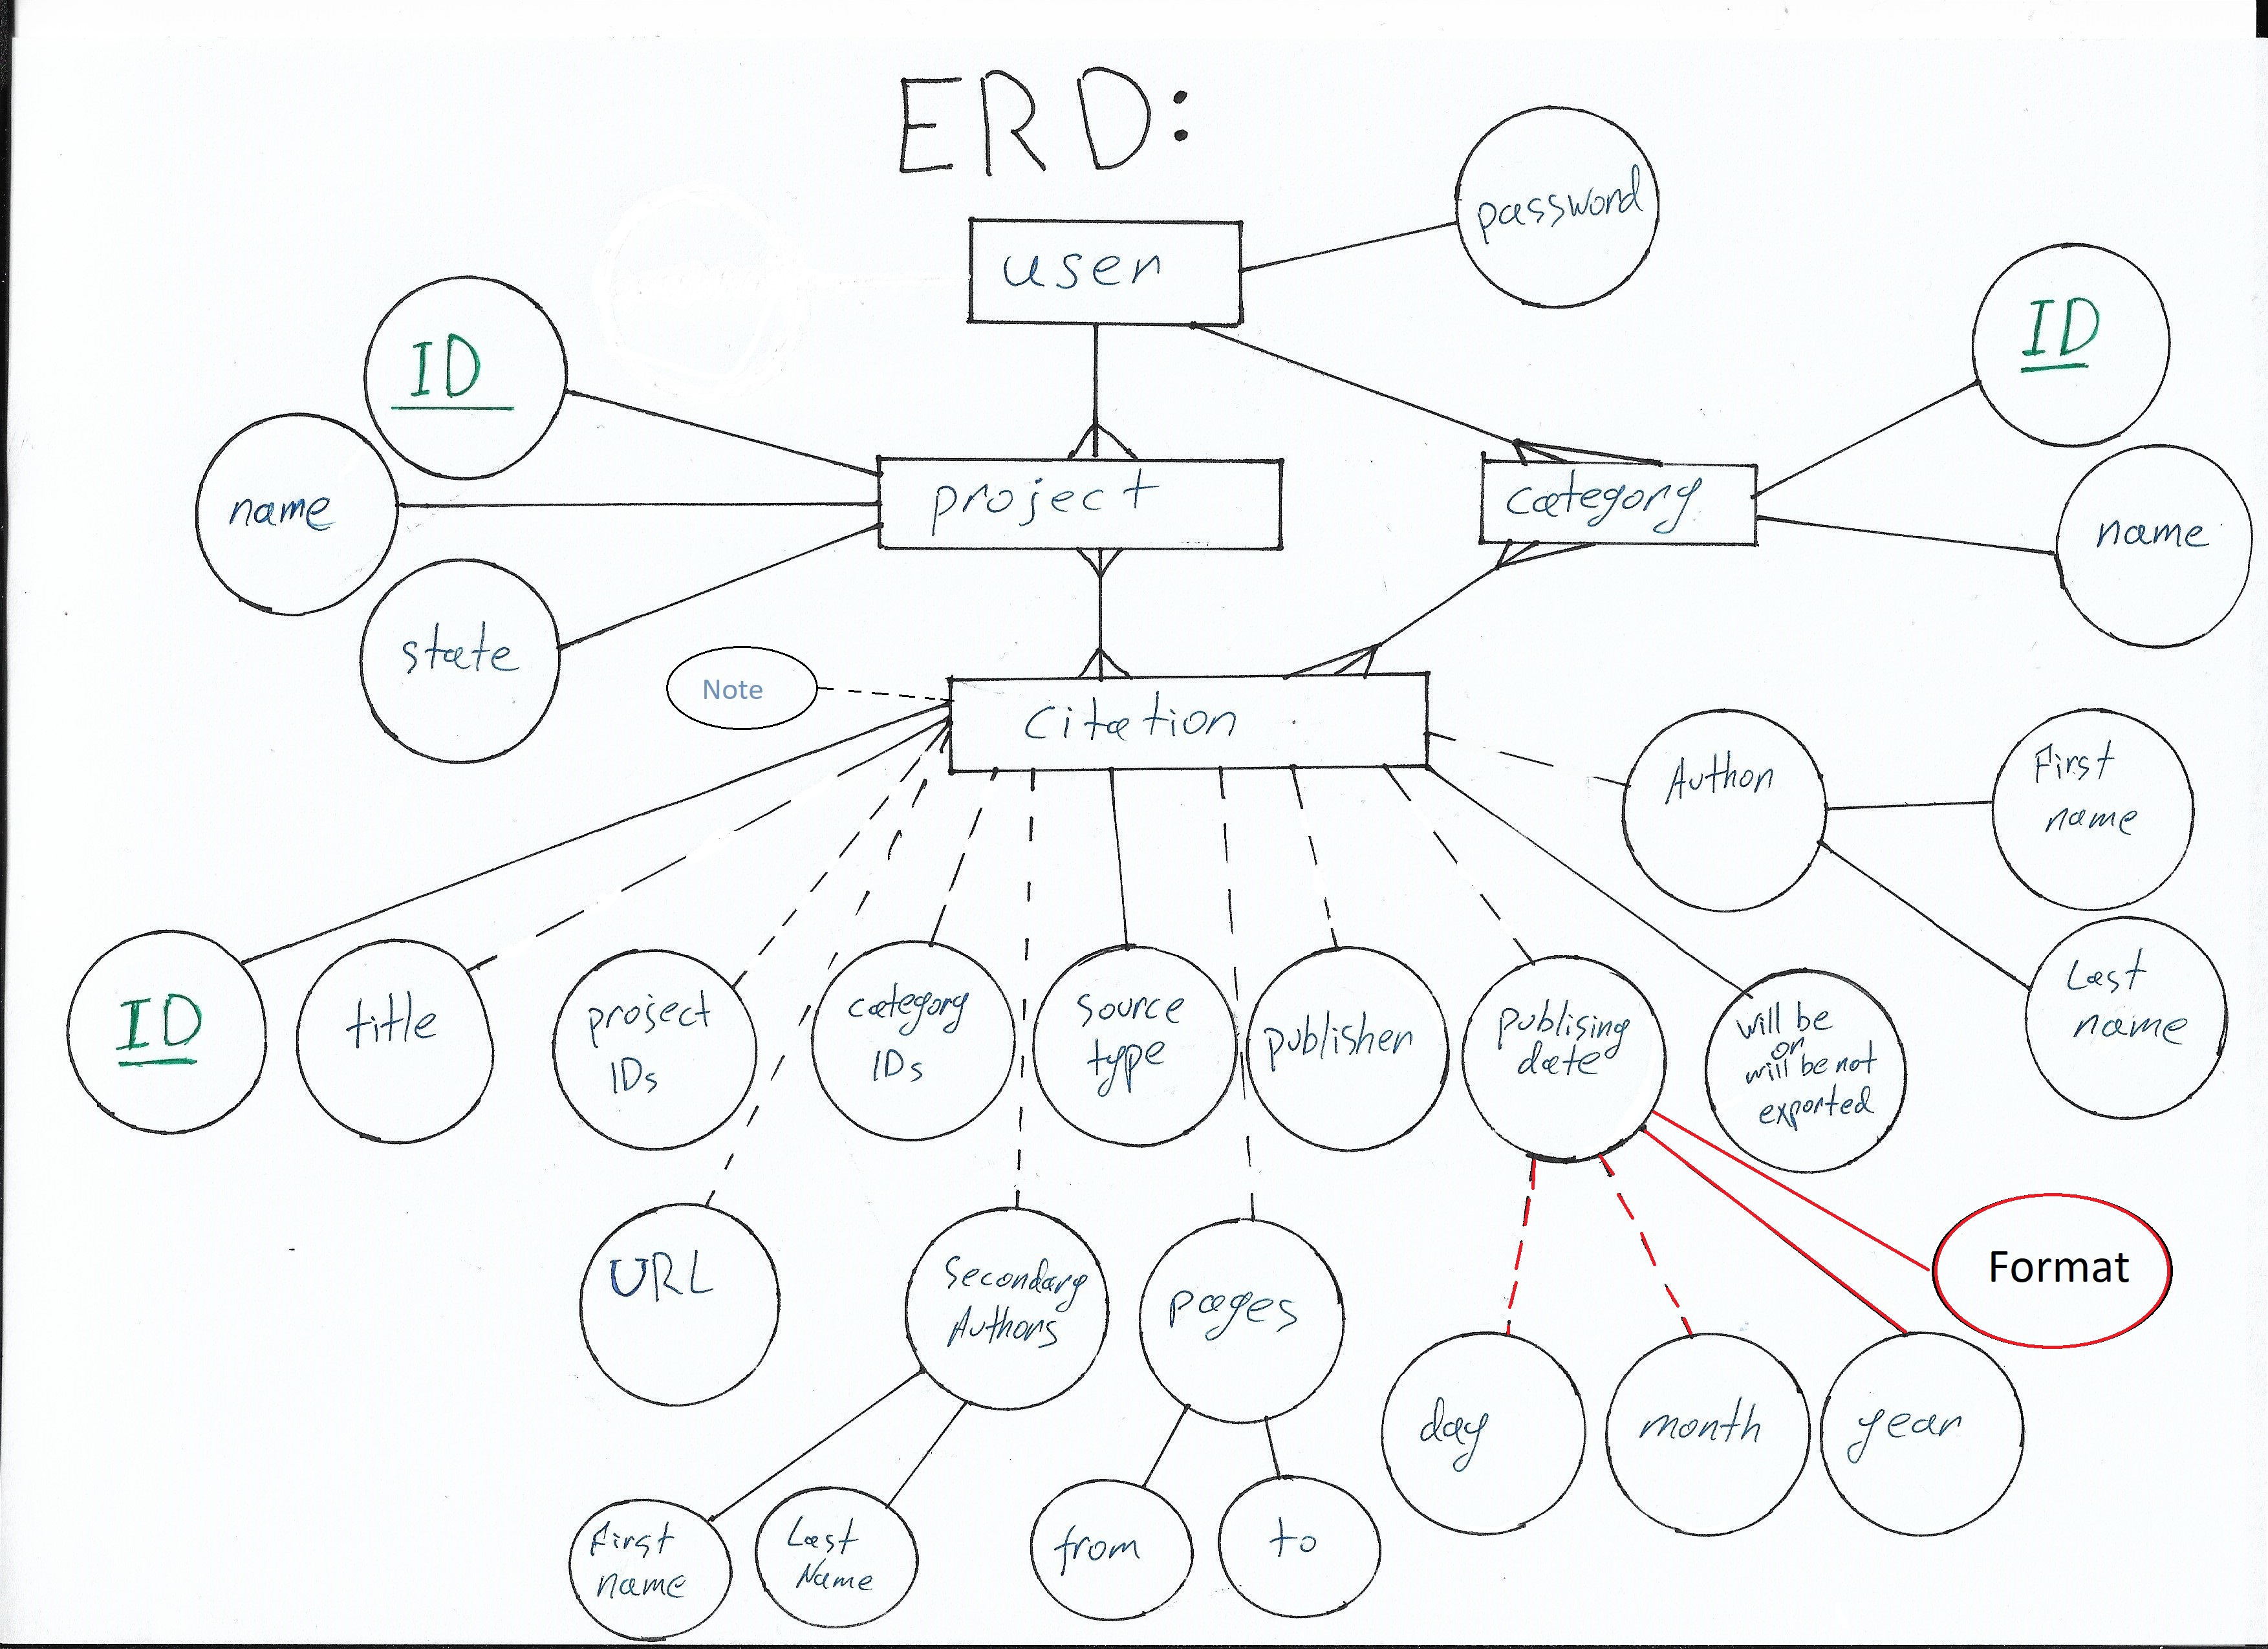 ERD:
password
user
ID
ID
name
project
category
name
state
Note
citation
Author
First
name
Last
name
ID
title
project
IDs
category
IDs
source
type
publisher
publising
date
will be
or
will be not
exported
URL
Secondary
Authors
pages
Format
day
month
year
First
name
Last
Name
from
to